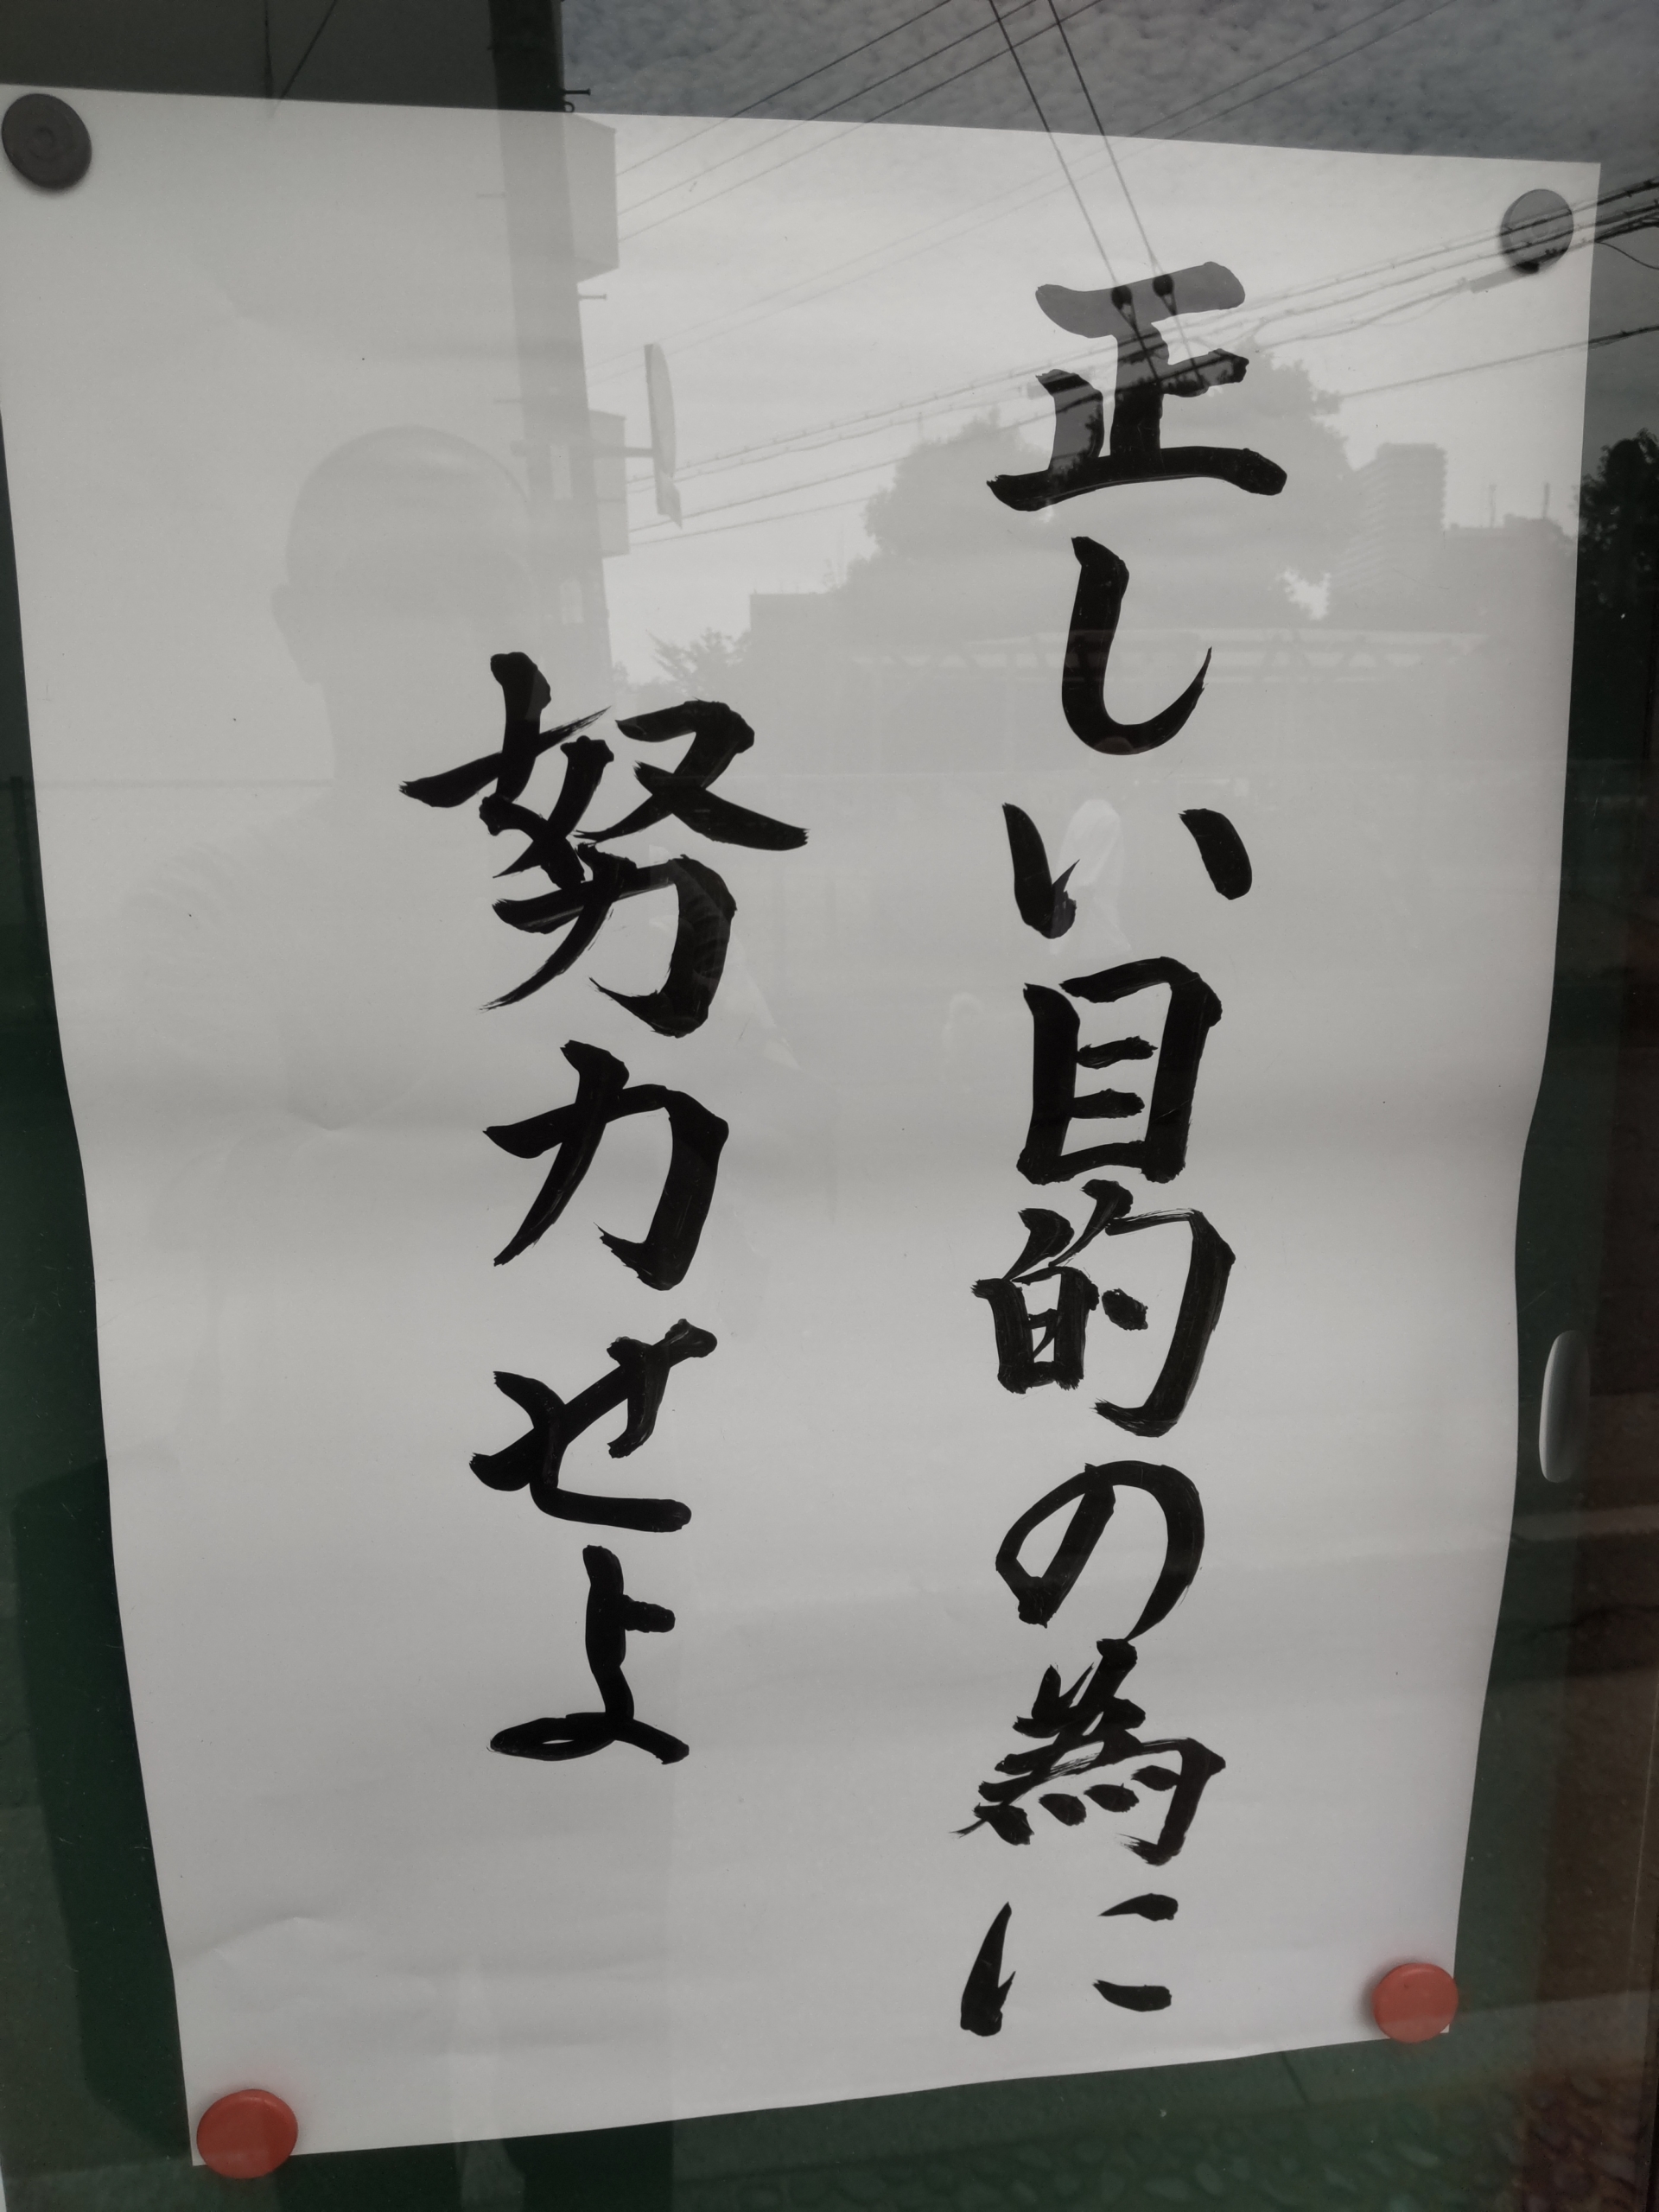 正しい目的の為に
努力せよ